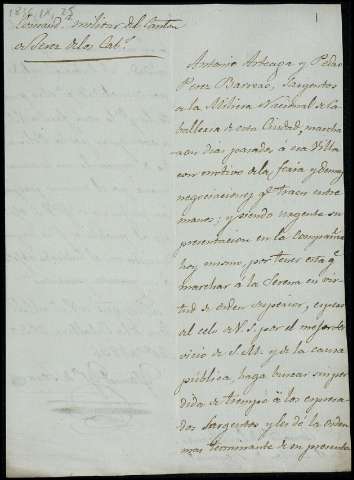 1836.IX.25
1
Comand.ª militar del Canton
de Jerez de los Cab.ˢ
Antonio Arteaga y Pedro
Perez Barrero, Sargentos
de la Milicia Nacional de Ca
balleria de esta Ciudad, marcha
ron dias pasados a esa Villa
con motivo de la feria y demas
negociaciones q.ᵉ traen entre
manos; y siendo urgente su
presentacion en la Compañia
hoy mismo, por tener esta q.ᵉ
marchar a la Serena en vir
tud de orden superior, espero
del celo de V.S. por el mejor ser
vicio de S.M. y de la causa
pública, haga buscar sin per
dida de tiempo á los expresa
dos Sargentos y les dé la orden
mas terminante de su presenta